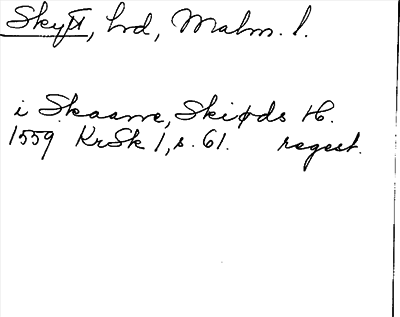 Skytt, hrd, Malm. l.
i Skaanne, Skiøds H.
1559 KrSk 1, s. 61. regest.